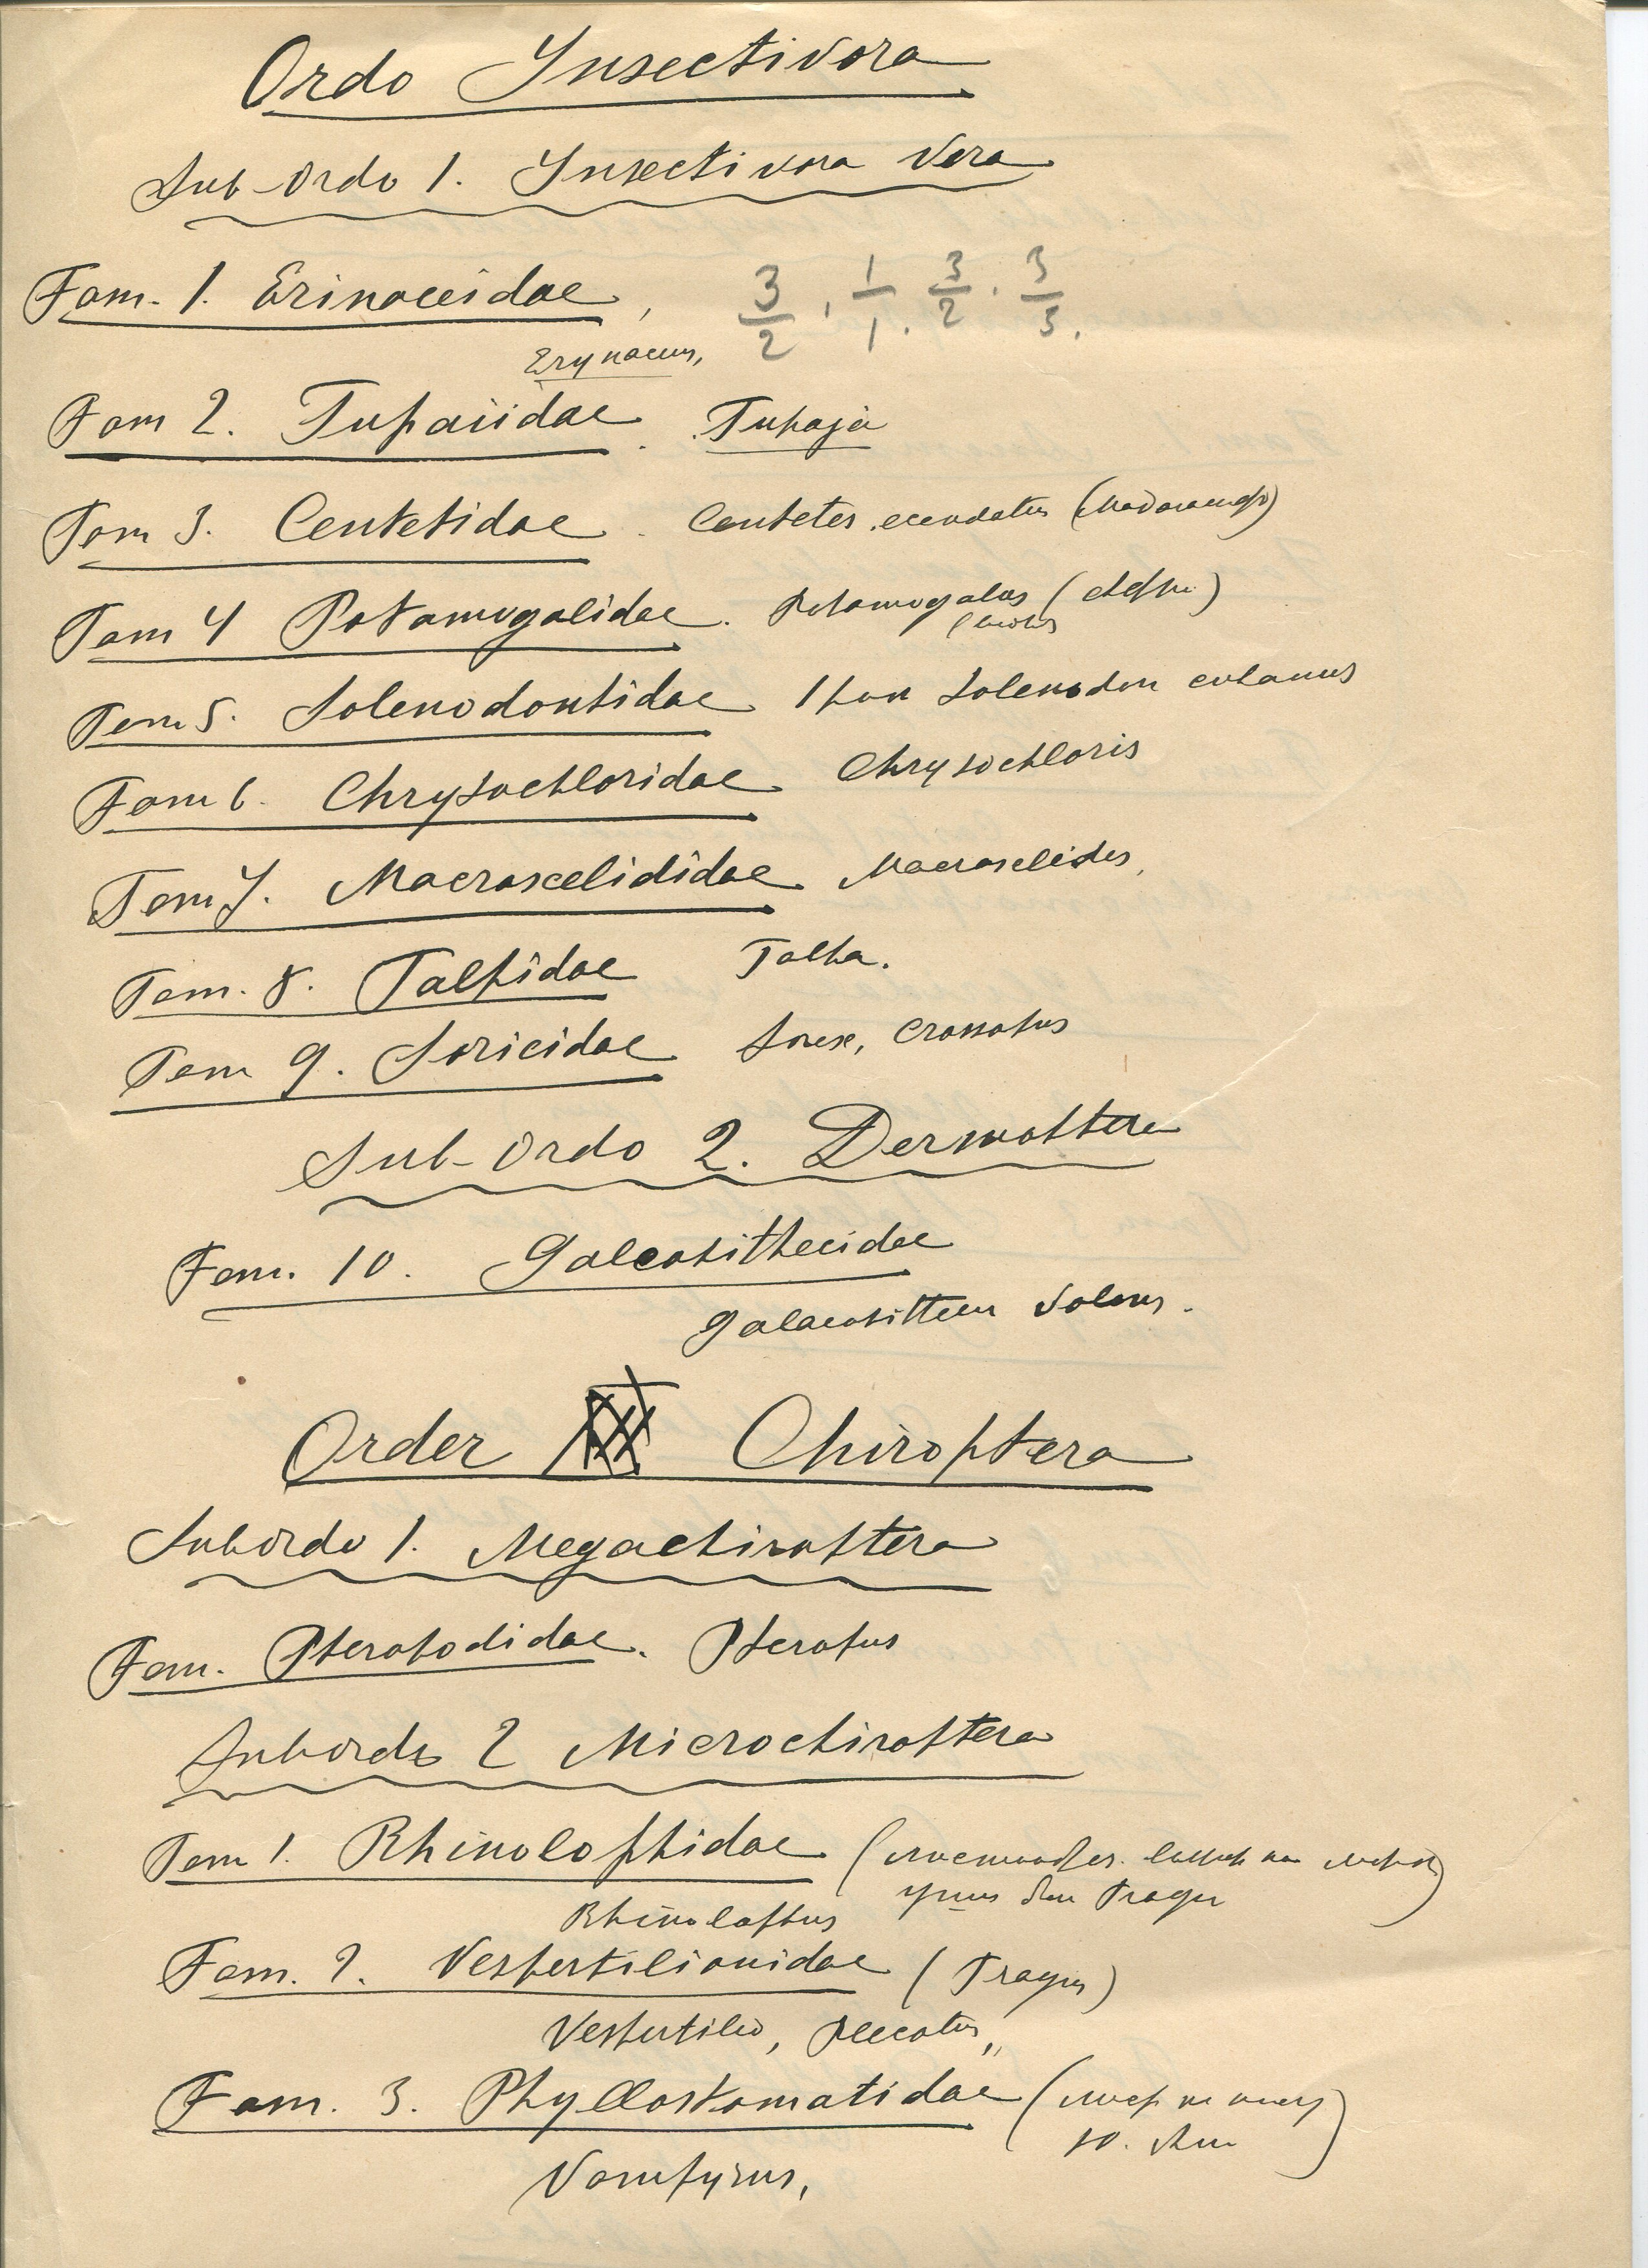 Ordo Insectivora
Sub-Ordo 1. Insectivora Vera
Fam. 1. Erinaceidae, 3/2 . 1/1 . 3/2 . 3/3.
Erynaceus,
Fam 2. Tupaiidae. Tupaja
Fam 3. Centetidae. Centetes ecaudatus
Fam 4 Potamogalidae. Potamogalus
Fam 5. Solenodontidae Solenodon cubanus
Fam 6. Chrysochloridae Chrysochloris
Fam 7. Macroscelididae Macroselides,
Fam. 8. Talpidae Talpa.
Fam 9. Soricidae Sorex, Crossopus
Sub-Ordo 2. Dermoptera
Fam. 10. Galeopithecidae
Galaeopithecus volans.
Order Chiroptera
Subordo 1. Megachiroptera
Fam. Pteropodidae. Pteropus
Subordo 2 Microchiroptera
Fam 1. Rhinolophidae
Tragus
Rhinolophus
Fam. 2. Vespertilionidae (Tragus)
Vespertilio, Plecotus,
Fam. 3. Phyllostomatidae
Vampyrus,